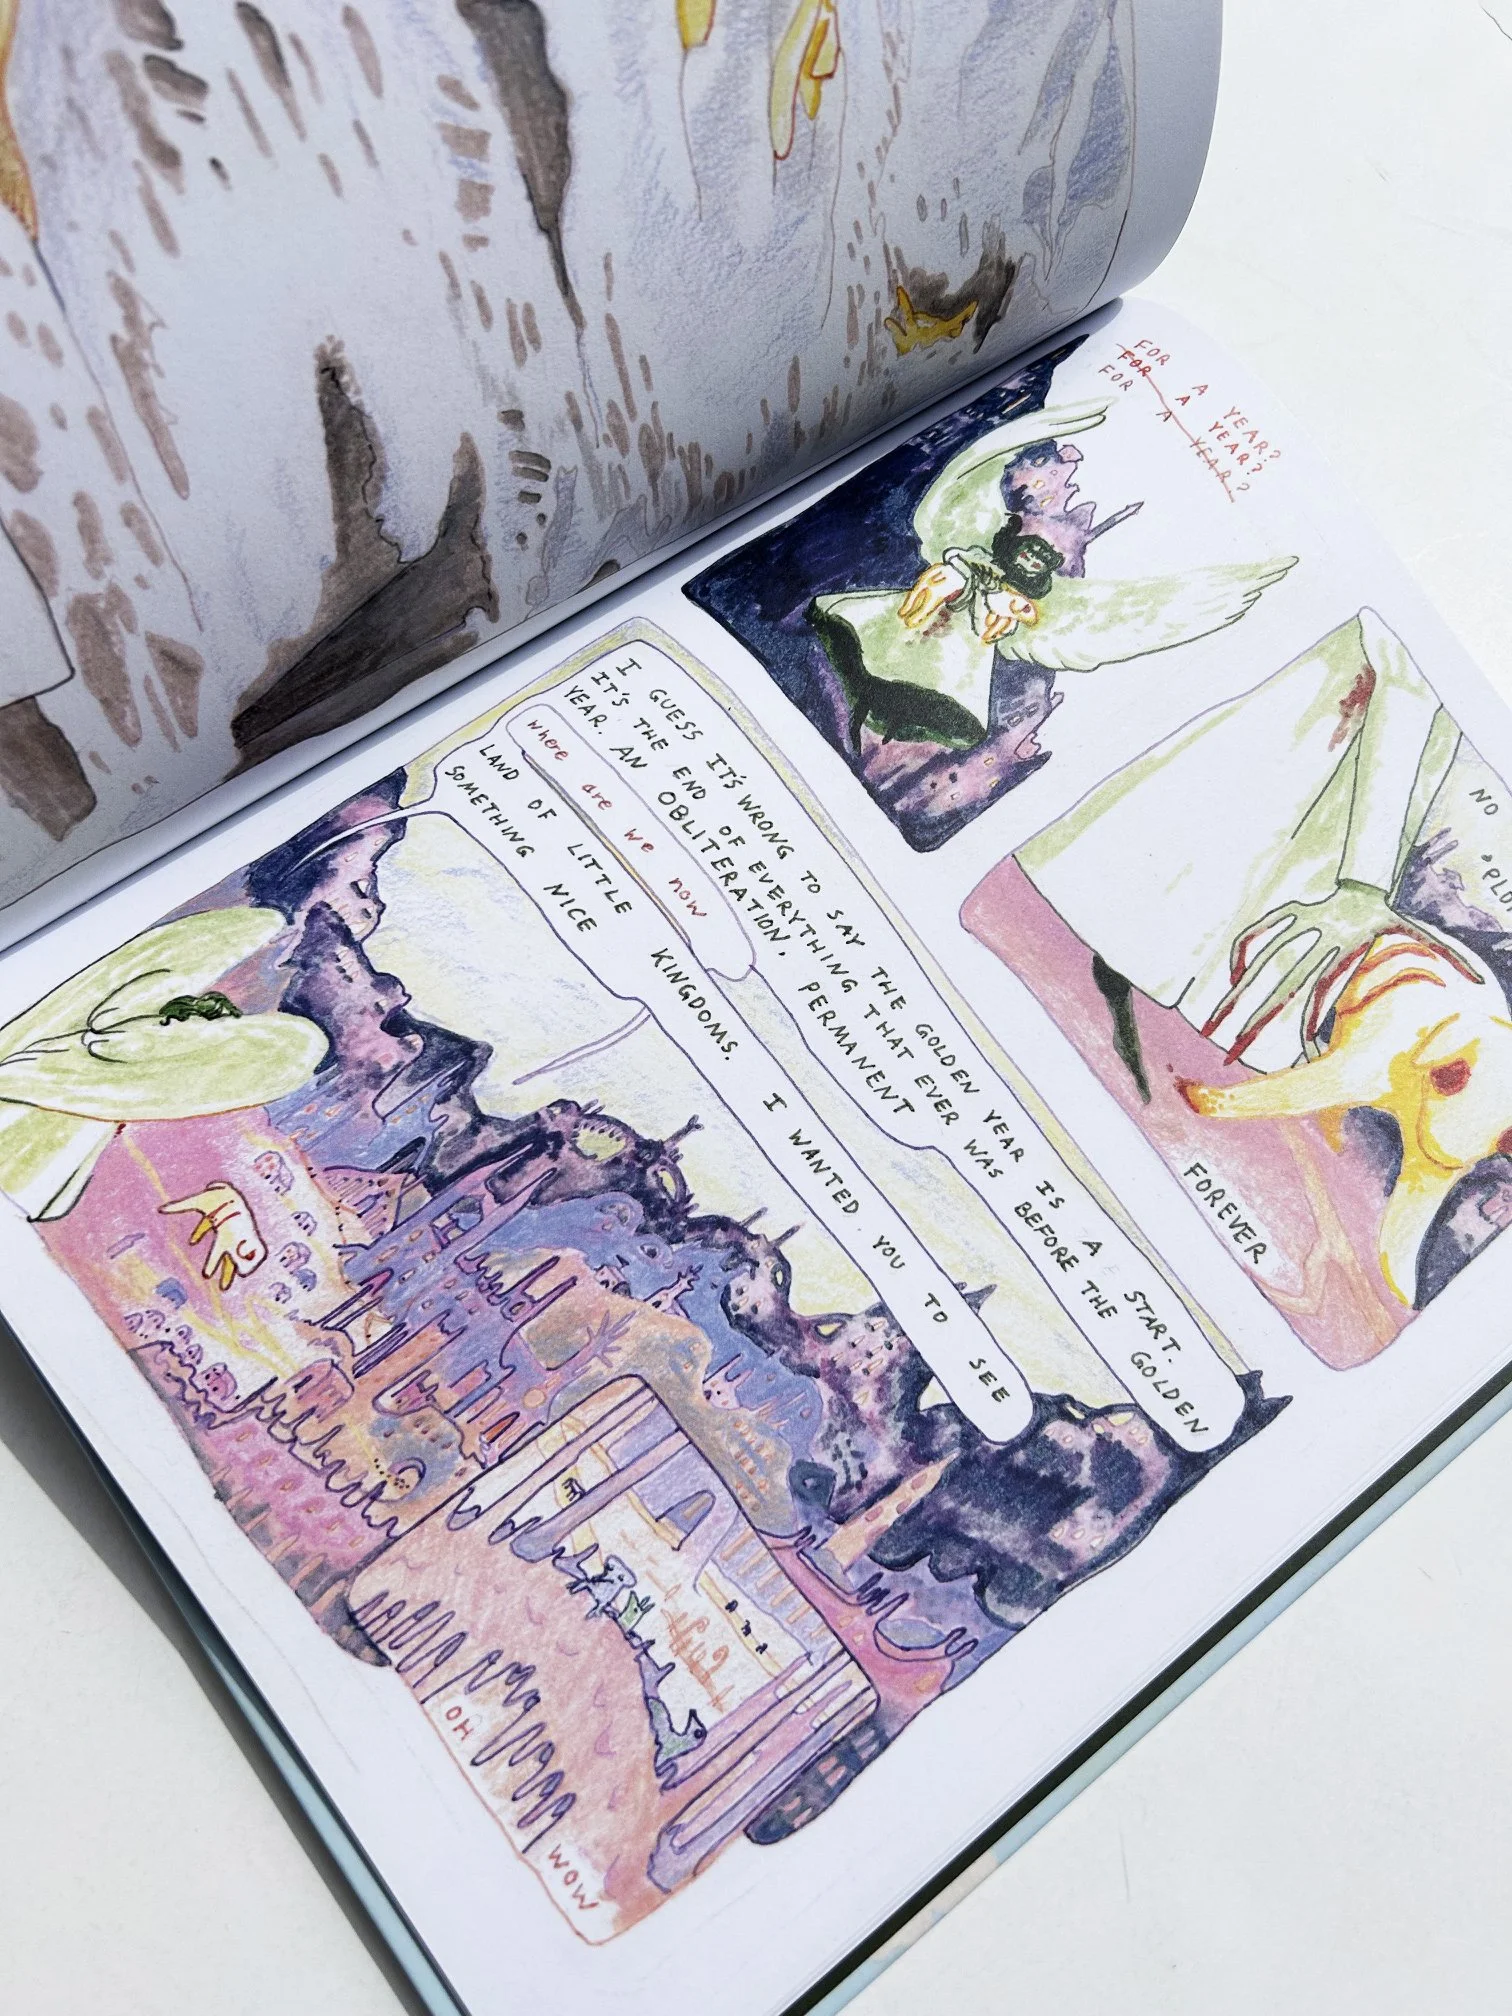 FOR A YEAR?
FOR A YEAR?
FOR A YEAR?
NO
FOREVER
I GUESS IT'S WRONG TO SAY THE GOLDEN YEAR IS A START.
IT'S THE END OF EVERYTHING THAT EVER WAS BEFORE THE GOLDEN
YEAR. AN OBLITERATION. PERMANENT
where are we now
LAND OF LITTLE KINGDOMS. I WANTED YOU TO SEE
SOMETHING NICE
OH
WOW